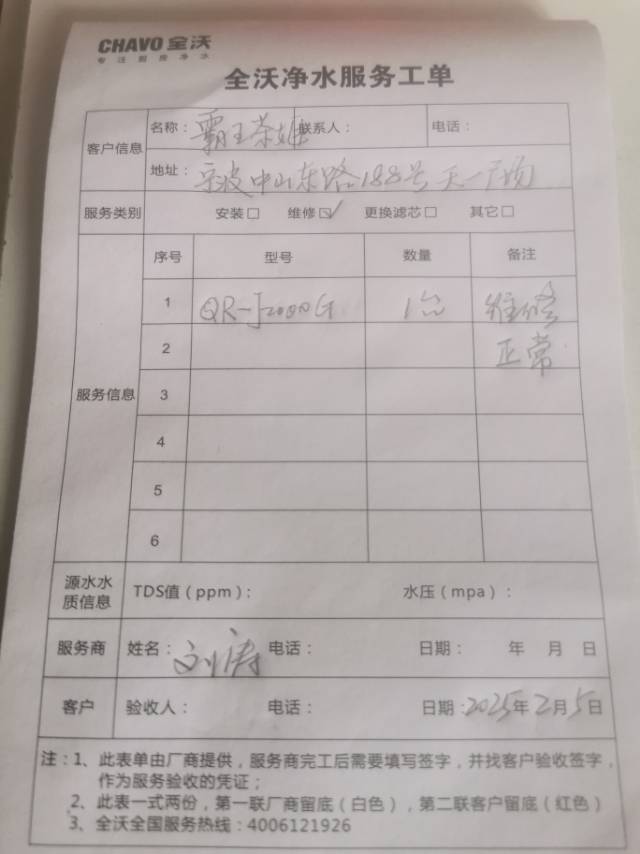 CHAVO 全沃
专注厨房净水
全沃净水服务工单
客户信息
名称：霸王茶姬 联系人： 电话：
地址：宁波中山东路188号天一广场
服务类别 安装□ 维修☑ 更换滤芯□ 其它□
服务信息
序号 型号 数量 备注
1 QR-J2000G 1台 维修
2 正常
3
4
5
6
源水水质信息 TDS值（ppm）： 水压（mpa）：
服务商 姓名：刘涛 电话： 日期： 年 月 日
客户 验收人： 电话： 日期：2025年2月5日
注：1、此表单由厂商提供，服务商完工后需要填写签字，并找客户验收签字，
作为服务验收的凭证；
2、此表一式两份，第一联厂商留底（白色），第二联客户留底（红色）
3、全沃全国服务热线：4006121926